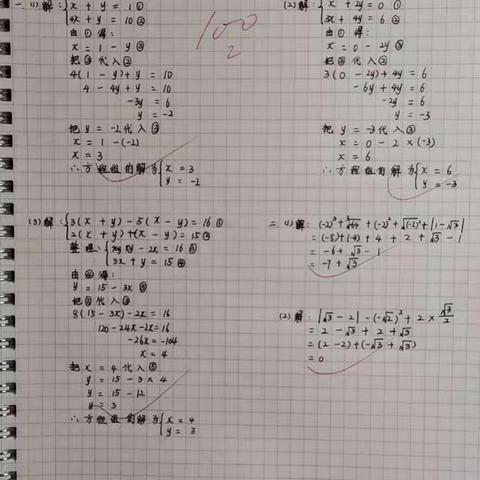 一. (1)解: {x + y = 1 ①
4x + y = 10 ②
由①得:
x = 1 - y ③
把③代入②
4(1 - y) + y = 10
4 - 4y + y = 10
-3y = 6
y = -2
把 y = -2代入③
x = 1 - (-2)
x = 3
∴方程组的解为{x = 3
y = -2
100
2
(2)解: {x + 2y = 0 ①
3x + 4y = 6 ②
由①得:
x = 0 - 2y ③
把③代入②
3(0 - 2y) + 4y = 6
-6y + 4y = 6
-2y = 6
y = -3
把 y = -3代入③
x = 0 - 2 × (-3)
x = 6
∴方程组的解为{x = 6
y = -3
(3)解: {3(x + y) - 5(x - y) = 16 ①
2(x + y) + (x - y) = 15 ②
整理: {8y - 2x = 16 ③
3x + y = 15 ④
由④得:
y = 15 - 3x ⑤
把⑤代入③
8(15 - 3x) - 2x = 16
120 - 24x - 2x = 16
-26x = -104
x = 4
把 x = 4 代入⑤
y = 15 - 3 × 4
y = 15 - 12
y = 3
∴方程组的解为{x = 4
y = 3
二. (1)解: (-2)³ + ∛-64 + (-2)² + √(-2)² + |1 - √3|
= (-8) + (-4) + 4 + 2 + √3 - 1
= -6 + √3 - 1
= -7 + √3
(2)解: |√3 - 2| - (-√2)² + 2 × √3/2
= 2 - √3 + 2 + √3
= (2 - 2) + (-√3 + √3)
= 0